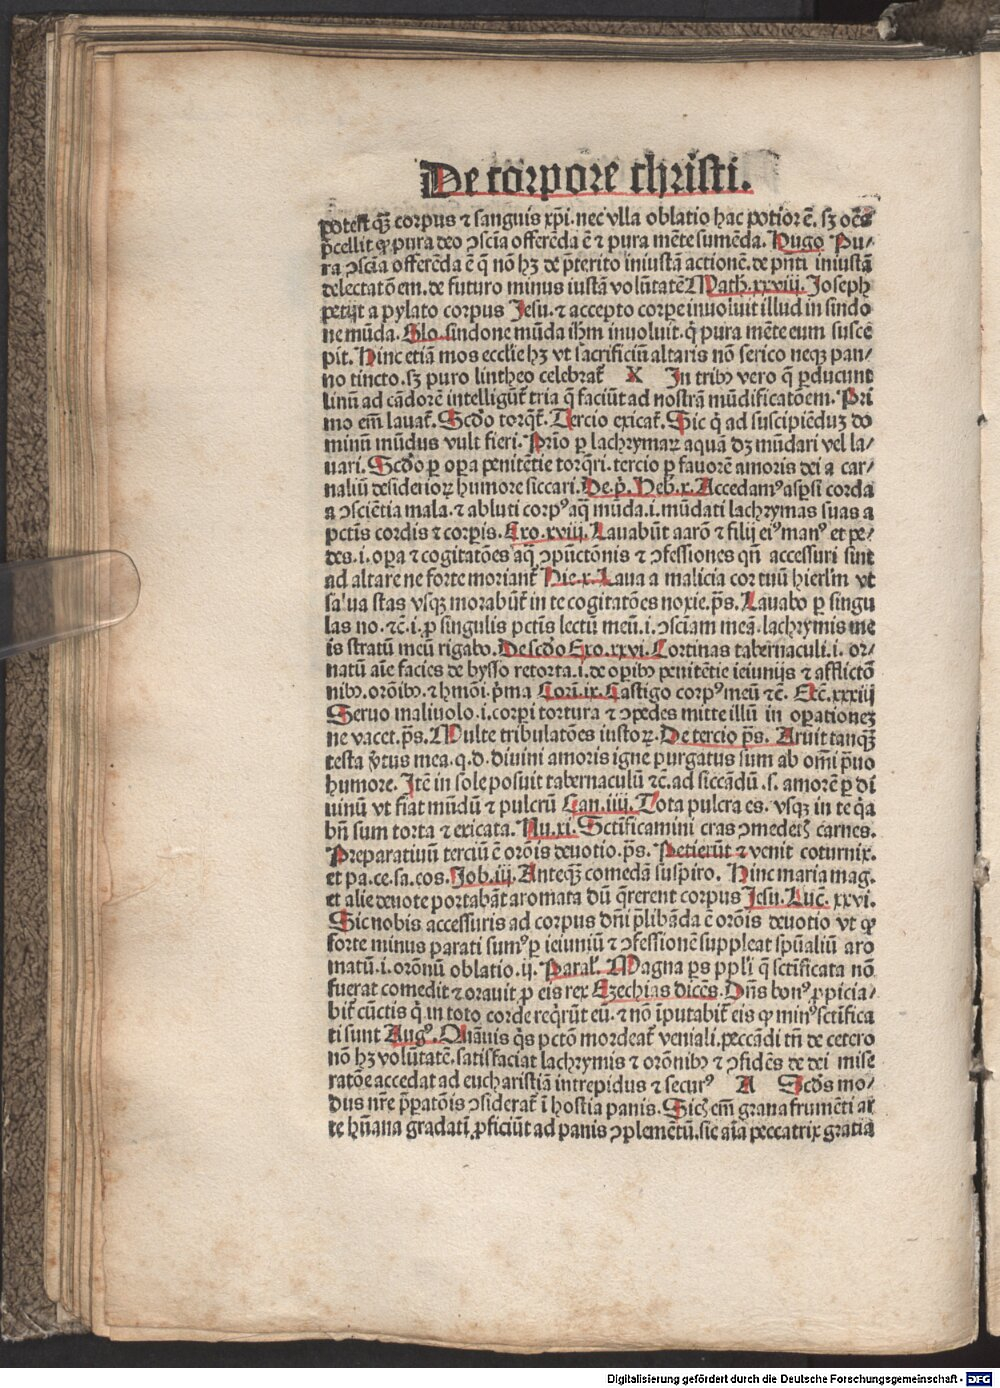 De corpore christi.
potest qȝ corpus ⁊ sanguis xp̄i. nec vlla oblatio hac potior ē. sȝ oēs
p̄cellit qꝫ pura deo ↄsciā offerēda ē ⁊ pura mēte sumēda. Hugo Pu/
ra ↄsciā offerēda ē q̄ nō hȝ de p̄terito iniustā actionē. de pn̄ti iniustā
delectatōem. de futuro minus iustā volūtatē Math. xxviij. Joseph
petijt a pylato corpus Jesu. ⁊ accepto corpe inuoluit illud in sindo
ne mūda. Glo. sindone mūda ihm̄ inuoluit. q̇ pura mēte eum susce
pit. Hinc etiā mos ecclie hȝ vt sacrificiū altaris nō serico neqȝ pan/
no tincto. sȝ puro lintheo celebrat̄ X In tribꝯ vero q̄ ꝑducunt
linū ad cādorē intelligūt̄ tria q̄ faciūt ad nostrā mūdificatōem. Pri
mo em̄ lauat̄. Scd̄o torqt̄. Tercio exicat̄. Sic q̇ ad suscipiēduȝ do
minū mūdus vult fieri. Prīo ꝑ lachrymaꝝ aquā dȝ mūdari vel la/
uari. Scd̄o ꝑ oꝑa penitētie torqr̄i. tercio ꝑ fauorē amoris dei a car/
naliū desideriorꝝ humore siccari. De. p̄. Heb. x. Accedamꝰ aspsi corda
a ↄsciētia mala. ⁊ abluti corpꝰ aq̄ mūda. i. mūdati lachrymas suas a
pctīs cordis ⁊ corpis. Exo. xviij. Lauabūt aarō ⁊ filij eiꝰ manꝰ et pe/
des. i. oꝑa ⁊ cogitatōes aq̄ ↄpūctōnis ⁊ ↄfessiones qn̄ accessuri sunt
ad altare ne forte moriant̄ Hie. x. Laua a malicia cor tuū hierlm̄ vt
salua fias vsqȝ morabūt̄ in te cogitatōes noxie. p̄s. Lauabo ꝑ singu
las no. ⁊c̄. i. ꝑ singulis pctīs lectū meū. i. ↄsciam meā. lachrymis me
is stratū meū rigabo. De scd̄o Exo. xxvi. Cortinas tabernaculi. i. or/
natū aīe facies de bysso retorta. i. de oꝑibꝯ penitētie ieiunijs ⁊ afflictō
nibꝯ. orōibꝯ. ⁊ hmōi. p̄ma Cori. ix. Castigo corpꝰ meū ⁊c̄. Ecc̄. xxxiij
Seruo maliuolo. i. corpi tortura ⁊ ↄpedes mitte illū in oꝑationeȝ
ne vacet. p̄s. Multe tribulatōes iustoꝝ. De tercio p̄s. Aruit tanqȝ
testa v̄tus mea. q. d. diuini amoris igne purgatus sum ab om̄i p̄uo
humore. Itē in sole posuit tabernaculū ⁊c̄. ad siccādū. s. amorē ꝑ di
uinū vt fiat mūdū ⁊ pulcrū Can. iiij. Tota pulcra es. vsqȝ in te q̇a
bn̄ sum torta ⁊ exicata. Nu. xi. Sctīficamini cras ↄmedetis carnes.
Preparatiuū terciū ē orōis deuotio. p̄s. Petierūt ⁊ venit coturnix.
et pa. ce. sa. cos. Job. iij. Anteqȝ comedā suspiro. Hinc maria mag.
et alie deuote portabāt aromata dū q̄rerent corpus Jesu. Luc̄. xxvi.
Sic nobis accessuris ad corpus dn̄i p̄libāda ē orōis deuotio vt qꝫ
forte minus parati sumꝰ ꝑ ieiuniū ⁊ ↄfessionē suppleat spūaliū aro
matū. i. orōnū oblatio. ij. Paral̄. Magna ps ppl̄i q̄ sctīficata nō
fuerat comedit ⁊ orauit ꝓ eis rex Ezechias dicēs. Dn̄s bonꝰ ꝓpicia/
bit̄ cūctis q̇ in toto corde reqr̄ūt eū. ⁊ nō īputabit̄ eis qꝫ minꝰ sctīfica
ti sunt Augꝰ. Quāuis q̇s pctō mordeat̄ veniali. peccādi tn̄ de cetero
nō hȝ volūtatē. satisfaciat lachrymis ⁊ orōnibꝯ ⁊ ↄfidēs de dei mise
ratōe accedat ad eucharistiā intrepidus ⁊ securꝰ A Scd̄s mo/
dus nr̄e p̄patōis ↄsiderat̄ ī hostia panis. Sicut em̄ grana frumēti ar
te hūana gradatī ꝓficiūt ad panis ↄplemētū. sic aīa peccatrix gratia
Digitalisierung gefördert durch die Deutsche Forschungsgemeinschaft - DFG